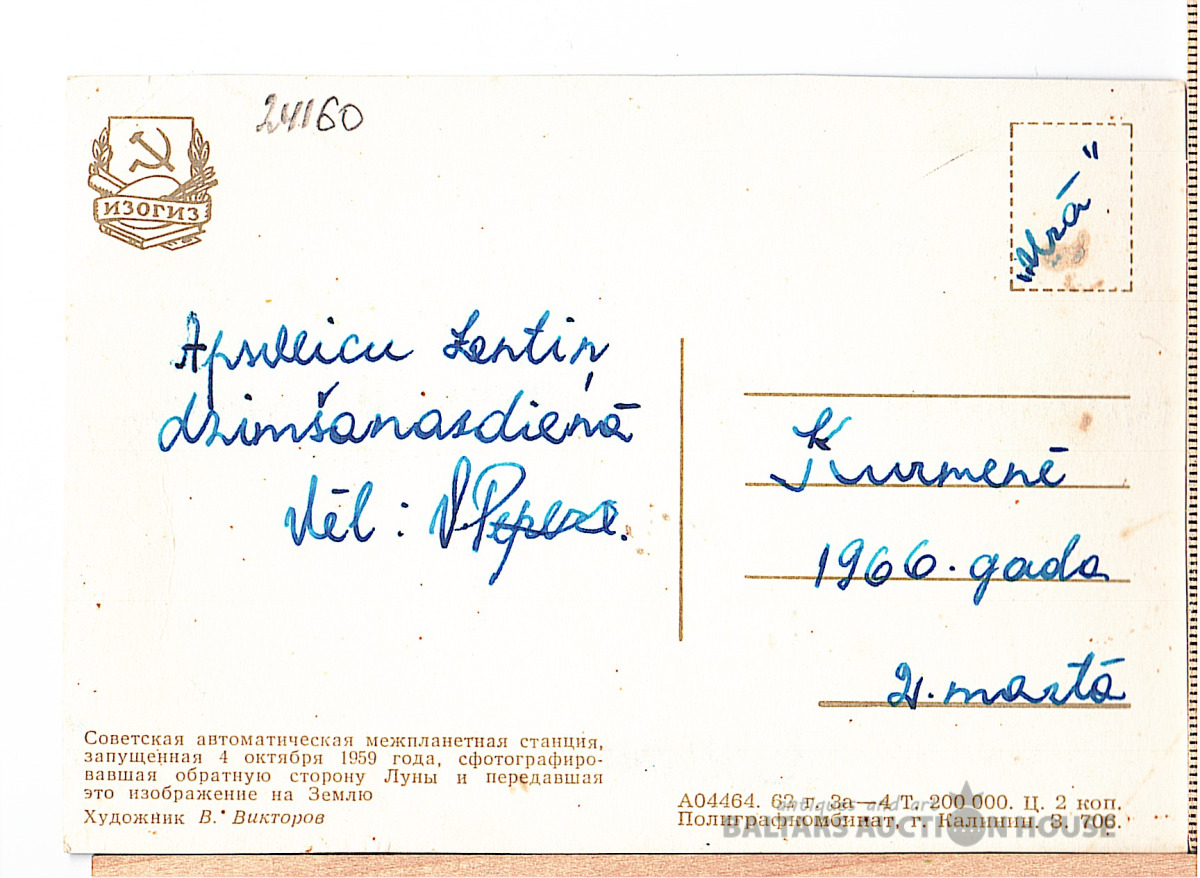 24160
ИЗОГИЗ
"Urá"
Apsveicu Zentiņ
dzimšanasdienā
Vēl: V.
Kurmenē
1966. gada
2. martā
Советская автоматическая межпланетная станция,
запущенная 4 октября 1959 года, сфотографиро-
вавшая обратную сторону Луны и передавшая
это изображение на Землю
Художник В. Викторов
А04464. 62 г. 3а—4/Т. 200 000. Ц. 2 коп.
Полиграфкомбинат, г. Калинин. З. 706.
antiques and art
BALTARS AUCTION HOUSE